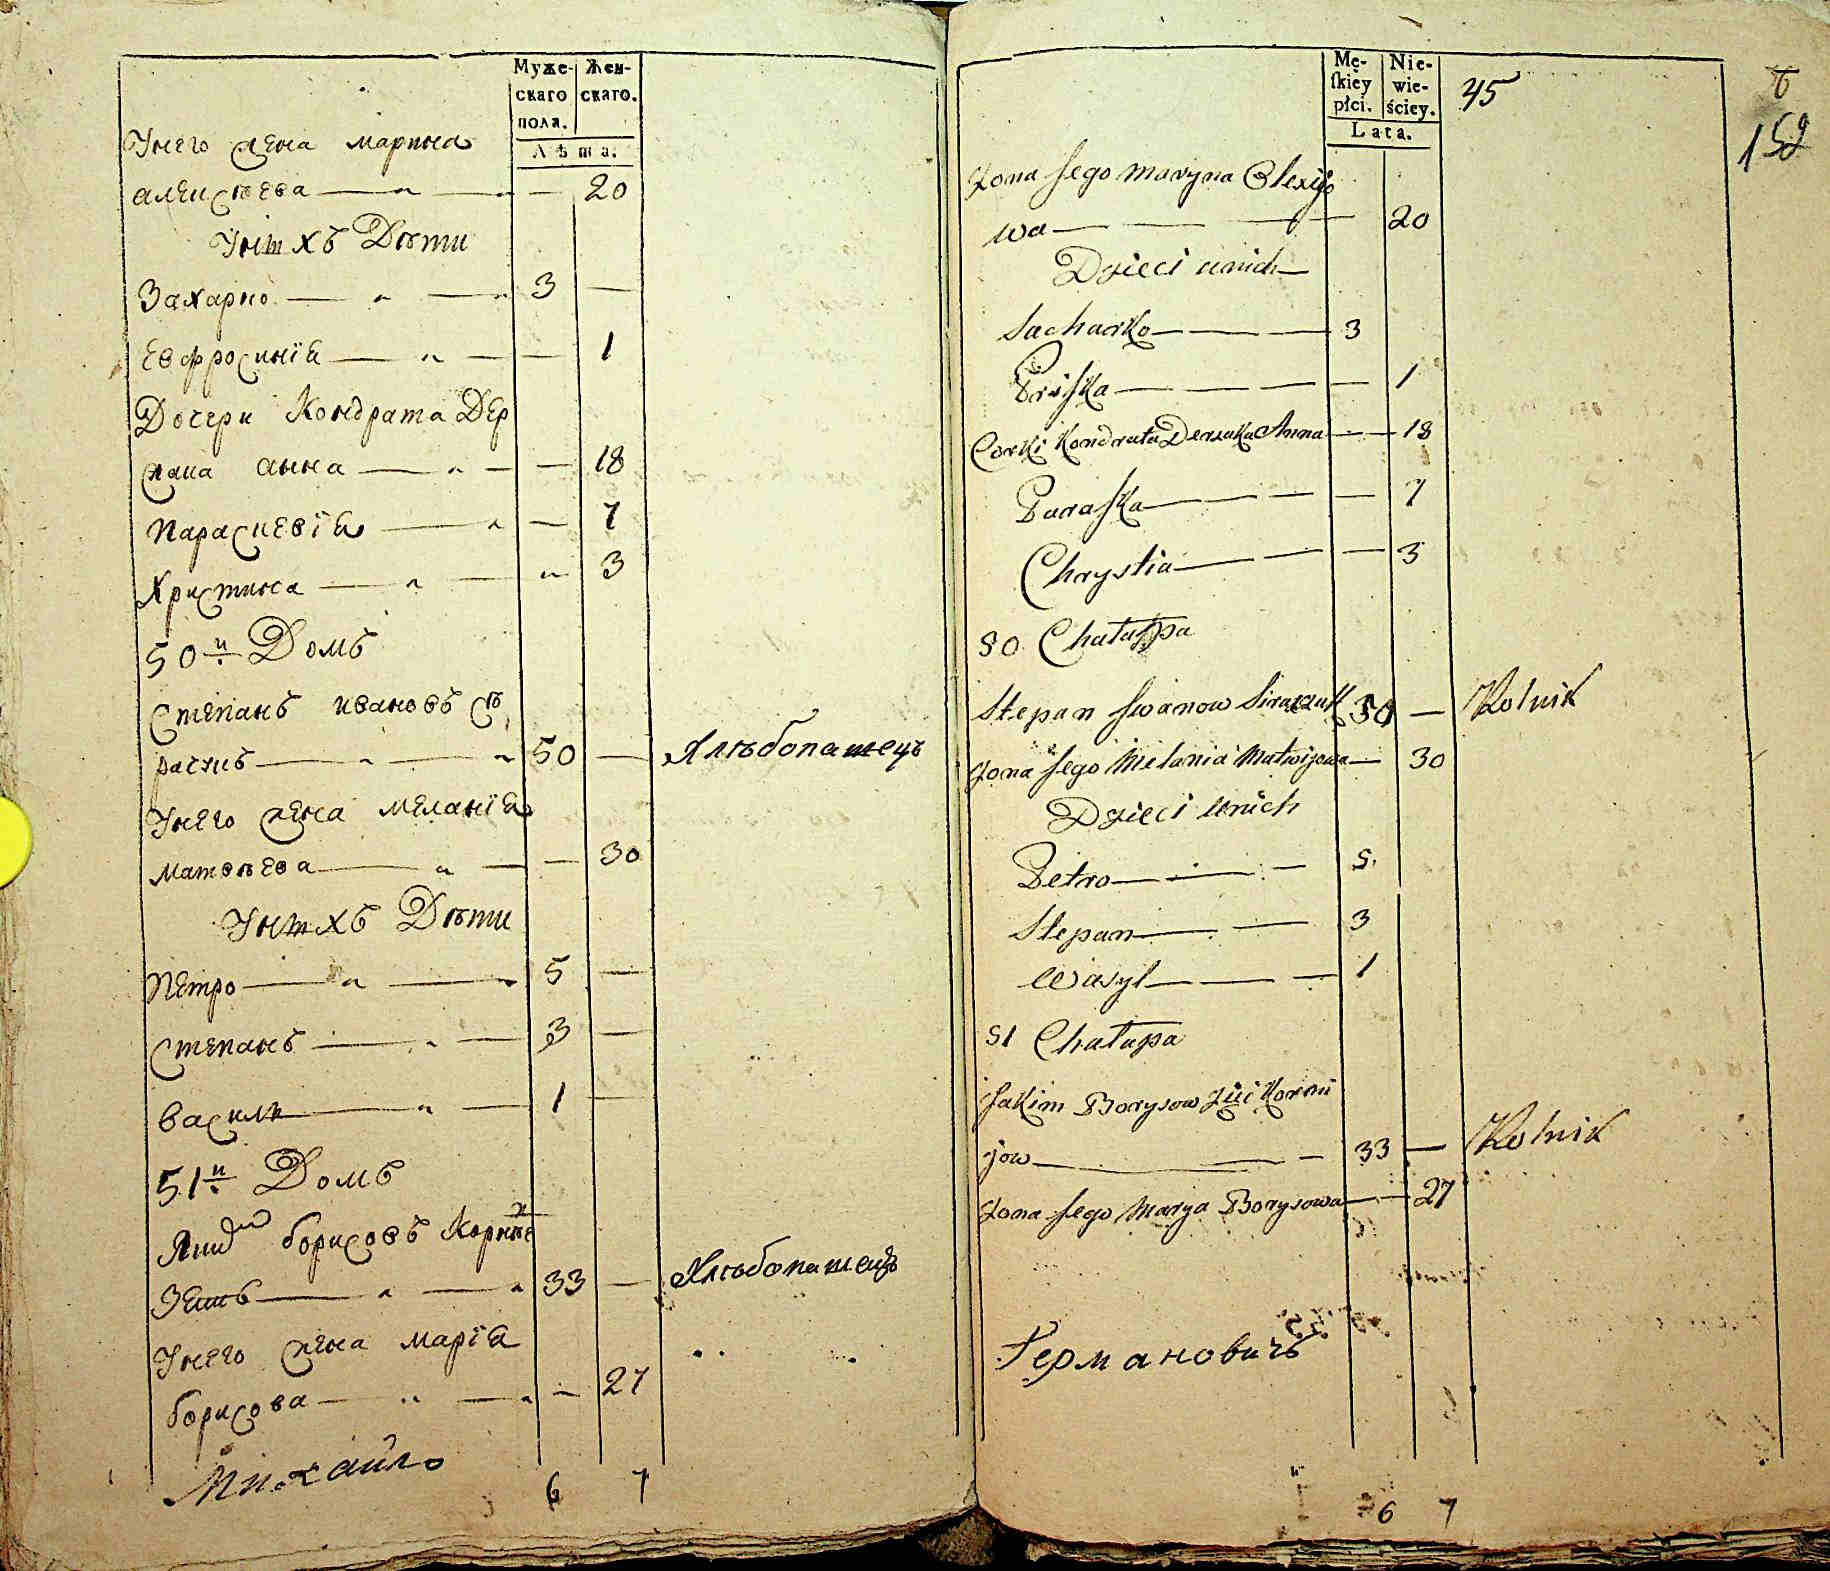 Муже- Жен-
скаго скаго.
пола.
Лѣта.
Унего жена марина
алексѣева — — — 20
Унихъ Дѣти
Захарко — — 3 —
Евфросинїя — — — 1
Дочери Кондрата Дер
жака анна — — — 18
параскевїя — — 7
Христина — — 3
50й Домъ
Степанъ ивановъ Сѣ
рачукъ — — 50 — Хлѣбопашецъ
Унего жена меланїя
матвѣева — — — 30
Унихъ Дѣти
петро — — 5 —
Степанъ — — 3 —
василь — — 1 —
51й Домъ
Яким борисовъ Корнїе
Зять — — 33 — Хлѣбопашецъ
Унего жена марїя
борисова — — — 27
Михаило
6 7
Mę- Nie-
skiey wie-
płci. ściey.
Lata.
45
6
152
Zona Jego Maryna Olexijo
wa — — — 20
Dzieci unich
Sacharko — — — 3
Priska — — — — 1
Corki Kondrata Derzaka Anna — — 18
Paraska — — — — 7
Chrystia — — — — 3
50 Chałupa
Stepan Iwanow Siraczuk 50 — Rolnik
Zona Jego Melania Matwijowa — 30
Dzieci unich
Petro — — — 5
Stepan — — 3
Wasyl — — — 1
51 Chałupa
Jakim Borysow Zięć Korni
jow — — 33 — Rolnik
Zona Jego Marya Borysowa — — 27
Германовичъ
6 7